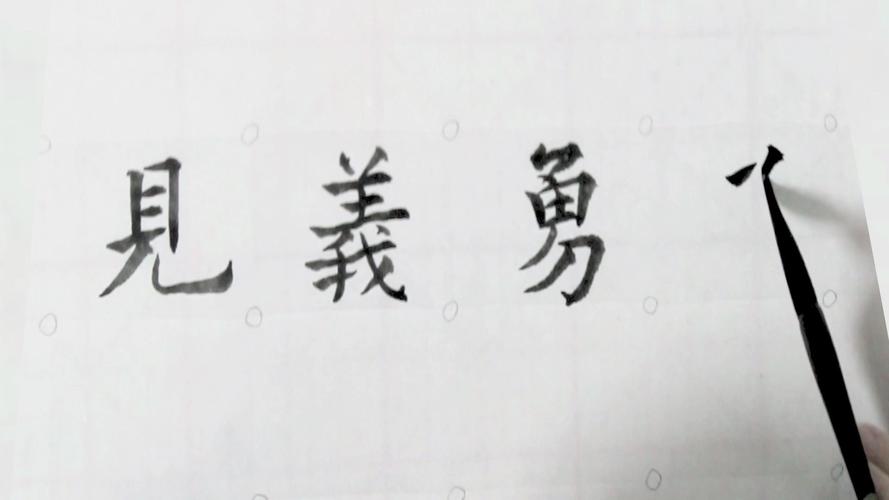 見義勇